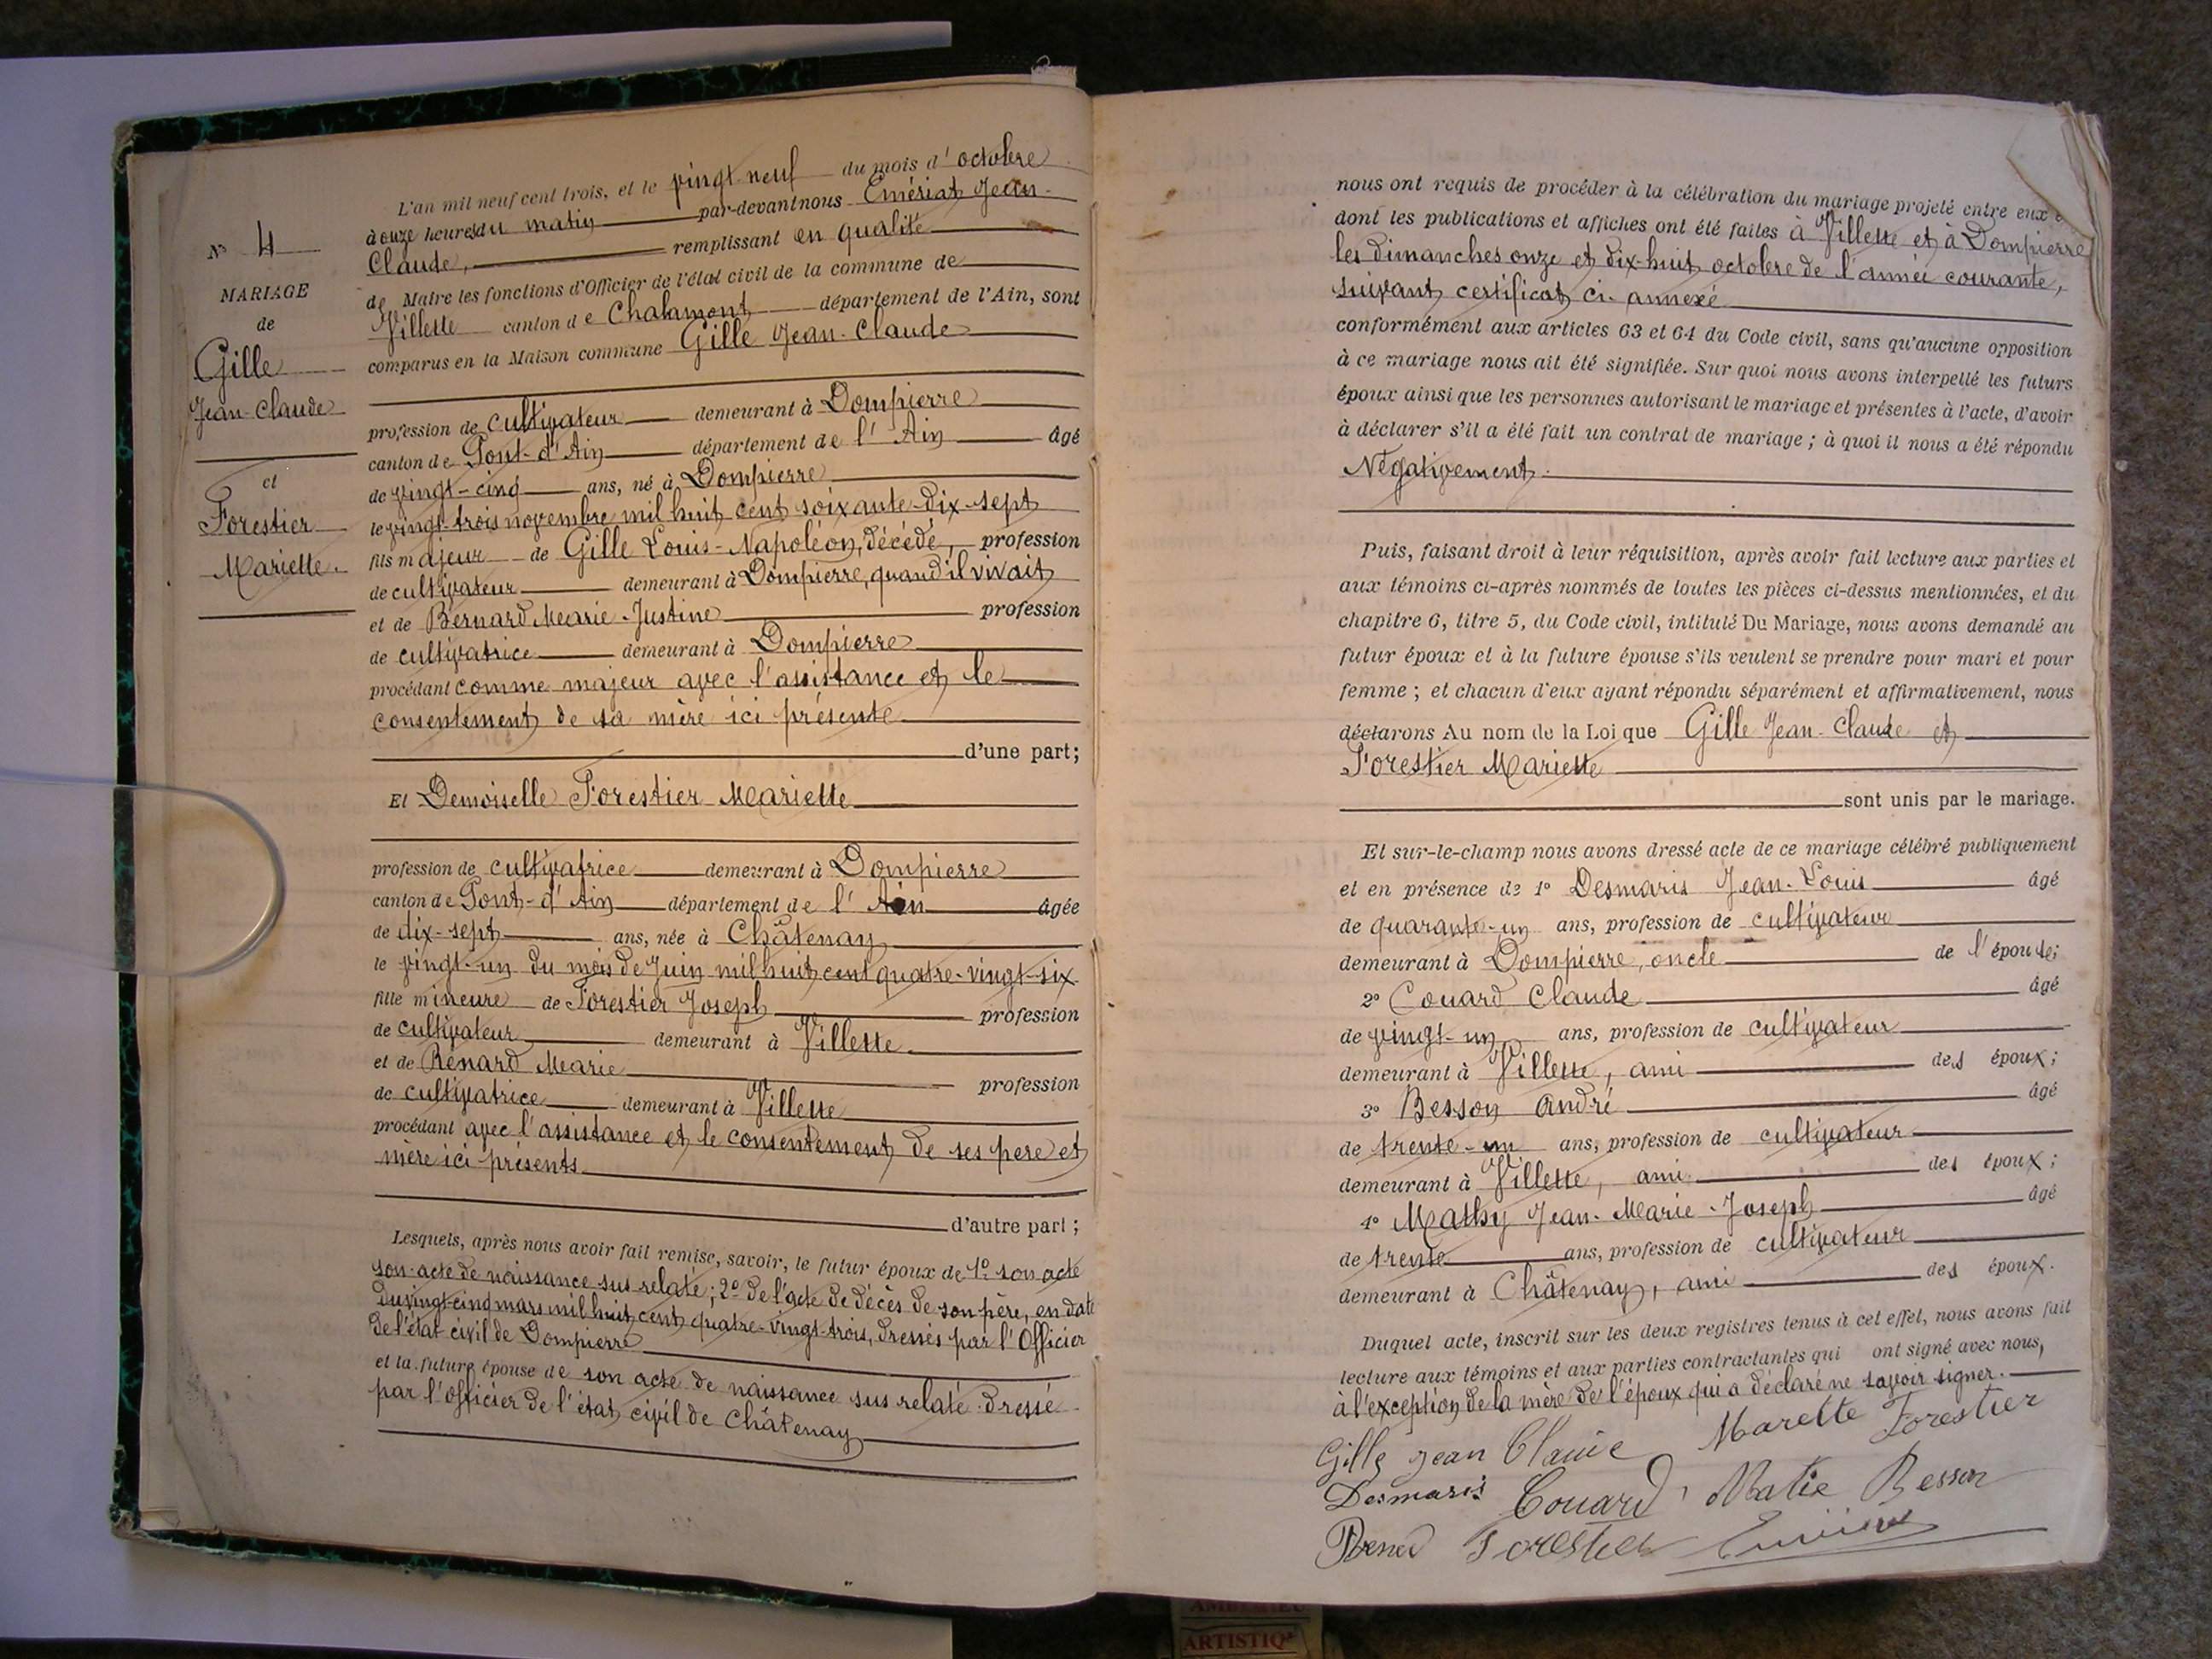 L'an mil neuf cent trois, et le vingt neuf du mois d'octobre
à onze heures du matin par-devant nous Emériat Jean-
Claude, remplissant en qualité
de Maire les fonctions d'Officier de l'état civil de la commune de
Villette canton de Chalamont département de l'Ain, sont
comparus en la Maison commune Gille Jean-Claude
N° 4
MARIAGE
de
Gille
Jean-Claude
et
Forestier
Mariette.
profession de cultivateur demeurant à Dompierre
canton de Pont-d'Ain département de l'Ain âgé
de vingt-cinq ans, né à Dompierre
le vingt-trois novembre mil huit cent soixante-dix-sept
fils majeur de Gille Louis-Napoléon, décédé, profession
de cultivateur demeurant à Dompierre, quand il vivait
et de Bernard Marie-Justine profession
de cultivatrice demeurant à Dompierre
procédant comme majeur avec l'assistance et le
consentement de sa mère ici présente
d'une part;
Et Demoiselle Forestier Mariette
profession de cultivatrice demeurant à Dompierre
canton de Pont-d'Ain département de l'Ain âgée
de dix-sept ans, née à Châtenay
le vingt-un du mois de Juin mil huit cent quatre-vingt-six
fille mineure de Forestier Joseph profession
de cultivateur demeurant à Villette
et de Rénard Marie profession
de cultivatrice demeurant à Villette
procédant avec l'assistance et le consentement de ses père et
mère ici présents
d'autre part;
Lesquels, après nous avoir fait remise, savoir, le futur époux de 1° son acte
son acte de naissance sus relaté; 2° de l'acte de décès de son père, en date
du vingt-cinq mars mil huit cent quatre-vingt-trois, dressés par l'Officier
de l'état civil de Dompierre
et la future épouse de son acte de naissance sus relaté dressé
par l'officier de l'état civil de Châtenay
nous ont requis de procéder à la célébration du mariage projeté entre eux
dont les publications et affiches ont été faites à Villette et à Dompierre
les dimanches onze et dix-huit octobre de l'année courante,
suivant certificat ci-annexé
conformément aux articles 63 et 64 du Code civil, sans qu'aucune opposition
à ce mariage nous ait été signifiée. Sur quoi nous avons interpellé les futurs
époux ainsi que les personnes autorisant le mariage et présentes à l'acte, d'avoir
à déclarer s'il a été fait un contrat de mariage; à quoi il nous a été répondu
Négativement.
Puis, faisant droit à leur réquisition, après avoir fait lecture aux parties et
aux témoins ci-après nommés de toutes les pièces ci-dessus mentionnées, et du
chapitre 6, titre 5, du Code civil, intitulé Du Mariage, nous avons demandé au
futur époux et à la future épouse s'ils veulent se prendre pour mari et pour
femme; et chacun d'eux ayant répondu séparément et affirmativement, nous
déclarons Au nom de la Loi que Gille Jean-Claude et
Forestier Mariette
sont unis par le mariage.
Et sur-le-champ nous avons dressé acte de ce mariage célébré publiquement
et en présence de 1° Desmaris Jean-Louis âgé
de quarante-un ans, profession de cultivateur
demeurant à Dompierre, oncle de l'épouse;
2° Couard Claude âgé
de vingt-un ans, profession de cultivateur
demeurant à Villette, ami des époux;
3° Besson André âgé
de trente-un ans, profession de cultivateur
demeurant à Villette, ami des époux;
4° Mathy Jean-Marie-Joseph âgé
de trente ans, profession de cultivateur
demeurant à Châtenay, ami des époux.
Duquel acte, inscrit sur les deux registres tenus à cet effet, nous avons fait
lecture aux témoins et aux parties contractantes qui ont signé avec nous,
à l'exception de la mère de l'époux qui a déclaré ne savoir signer.
Gille Jean Claude Marette Forestier
Desmaris Couard Matie Besson
Forestier
ARTISTIQ